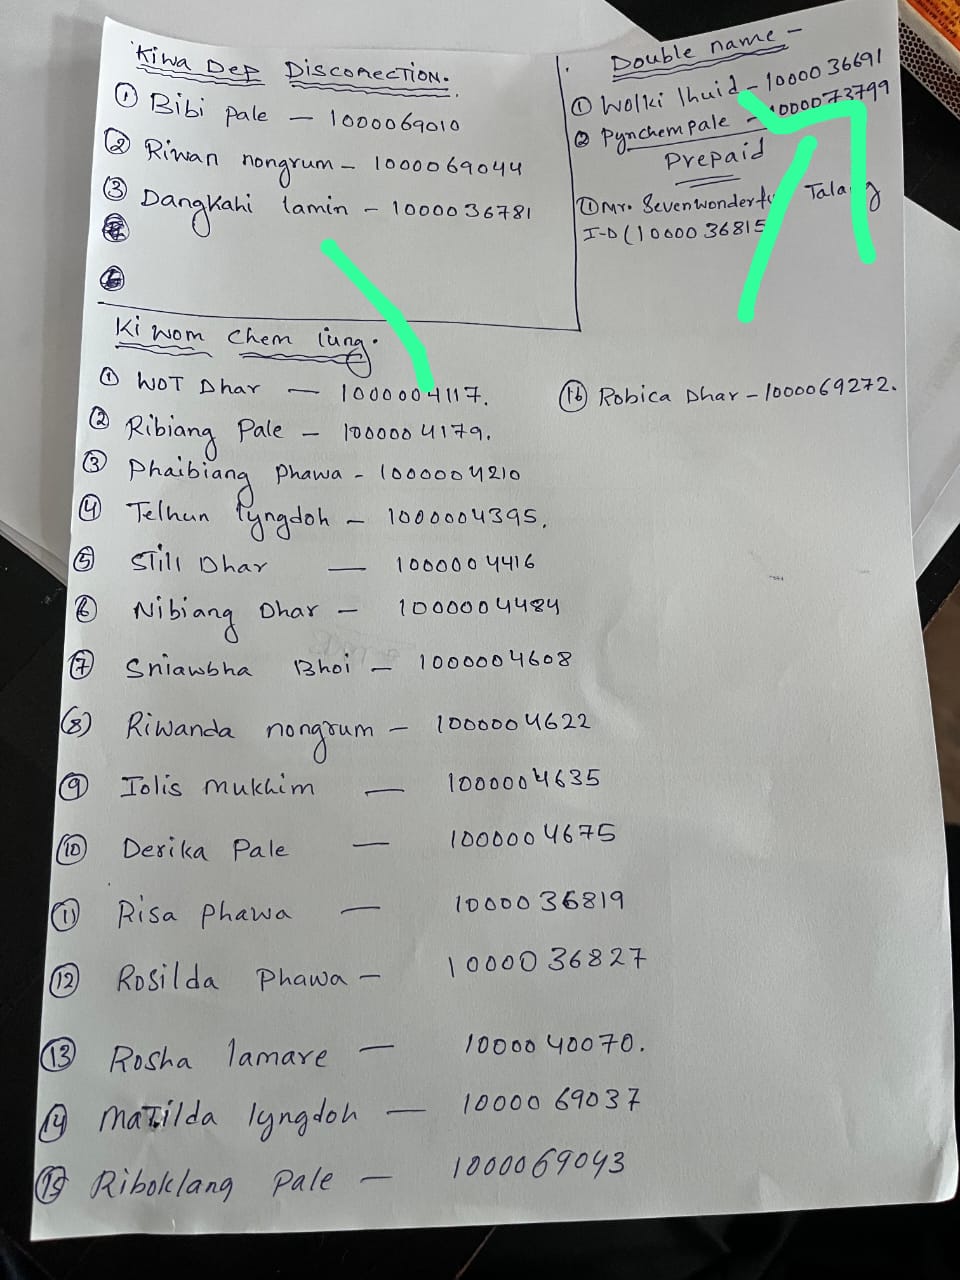 Kiwa Dep Disconection.
① Bibi pale — 1000069010
② Riwan nongrum — 1000069044
③ Dangkahi lamin — 1000036781
Double name —
① Wolki lhuid — 1000036691
② Pynchempale — 1000073799
Prepaid
① Mr. Sevenwonderfu Talang
I-D (1000036815
Ki wom chem lung.
① WOT Dhar — 1000004117.
② Ribiang Pale — 1000004179.
③ Phaibiang phawa - 1000004210
④ Telhun lyngdoh — 1000004395.
⑤ Still Dhar — 1000004416
⑥ Nibiang Dhar — 1000004484
⑦ Sniawbha Bhoi — 1000004608
⑧ Riwanda nongrum — 1000004622
⑨ Iolis mukhim — 1000004635
⑩ Derika Pale — 1000004675
⑪ Risa phawa — 1000036819
⑫ Rosilda Phawa — 1000036827
⑬ Rosha lamare — 1000040070.
⑭ Matilda lyngdoh — 1000069037
⑮ Riboklang Pale — 1000069043
⑯ Robica Dhar — 1000069272.